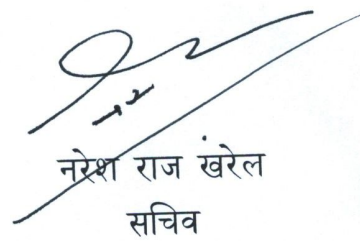 नरेश राज खरेल
सचिव